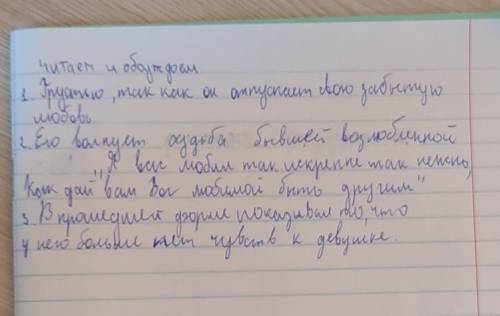 Читаем и обсуждаем
1. Грустью, так как он отпускает свою забытую
любовь
2. Его волнует судьба бывшей возлюбленной
"Я вас любил так искренне так нежно,
Как дай вам Бог любимой быть другим"
3. В прошедшей форме показывая то, что
у него больше нет чувств к девушке.